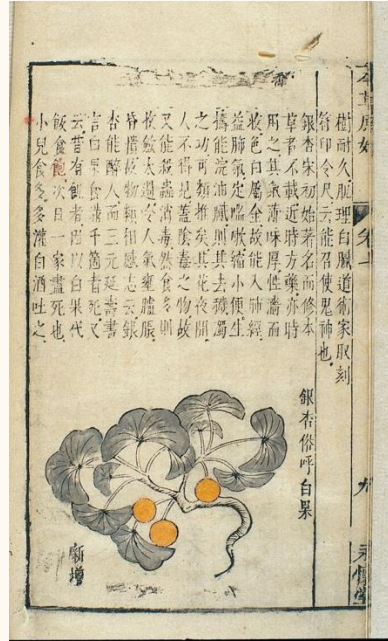 樹耐久肌理白膩道術家取刻
符印令尺云能召使鬼神也
銀杏宋初始著名而修本
草者不載近時方藥亦時
用之其氣薄味厚性濇而
收色白屬金故能入肺經
益肺氣定喘嗽縮小便生
擣能浣油膩則其去穢濁
之功可類推矣其花夜開
人不得見蓋陰毒之物故
又能殺蟲消毒然食多則
收斂太過令人氣壅臚脹
昏憒故物類相感志云銀
杏能醉人而三元延壽書
言白果食滿千箇者死又
云昔有飢者同以白果代
飯食飽次日一家盡死也
小兒食多多灌白酒吐之
銀杏俗呼白果
新增